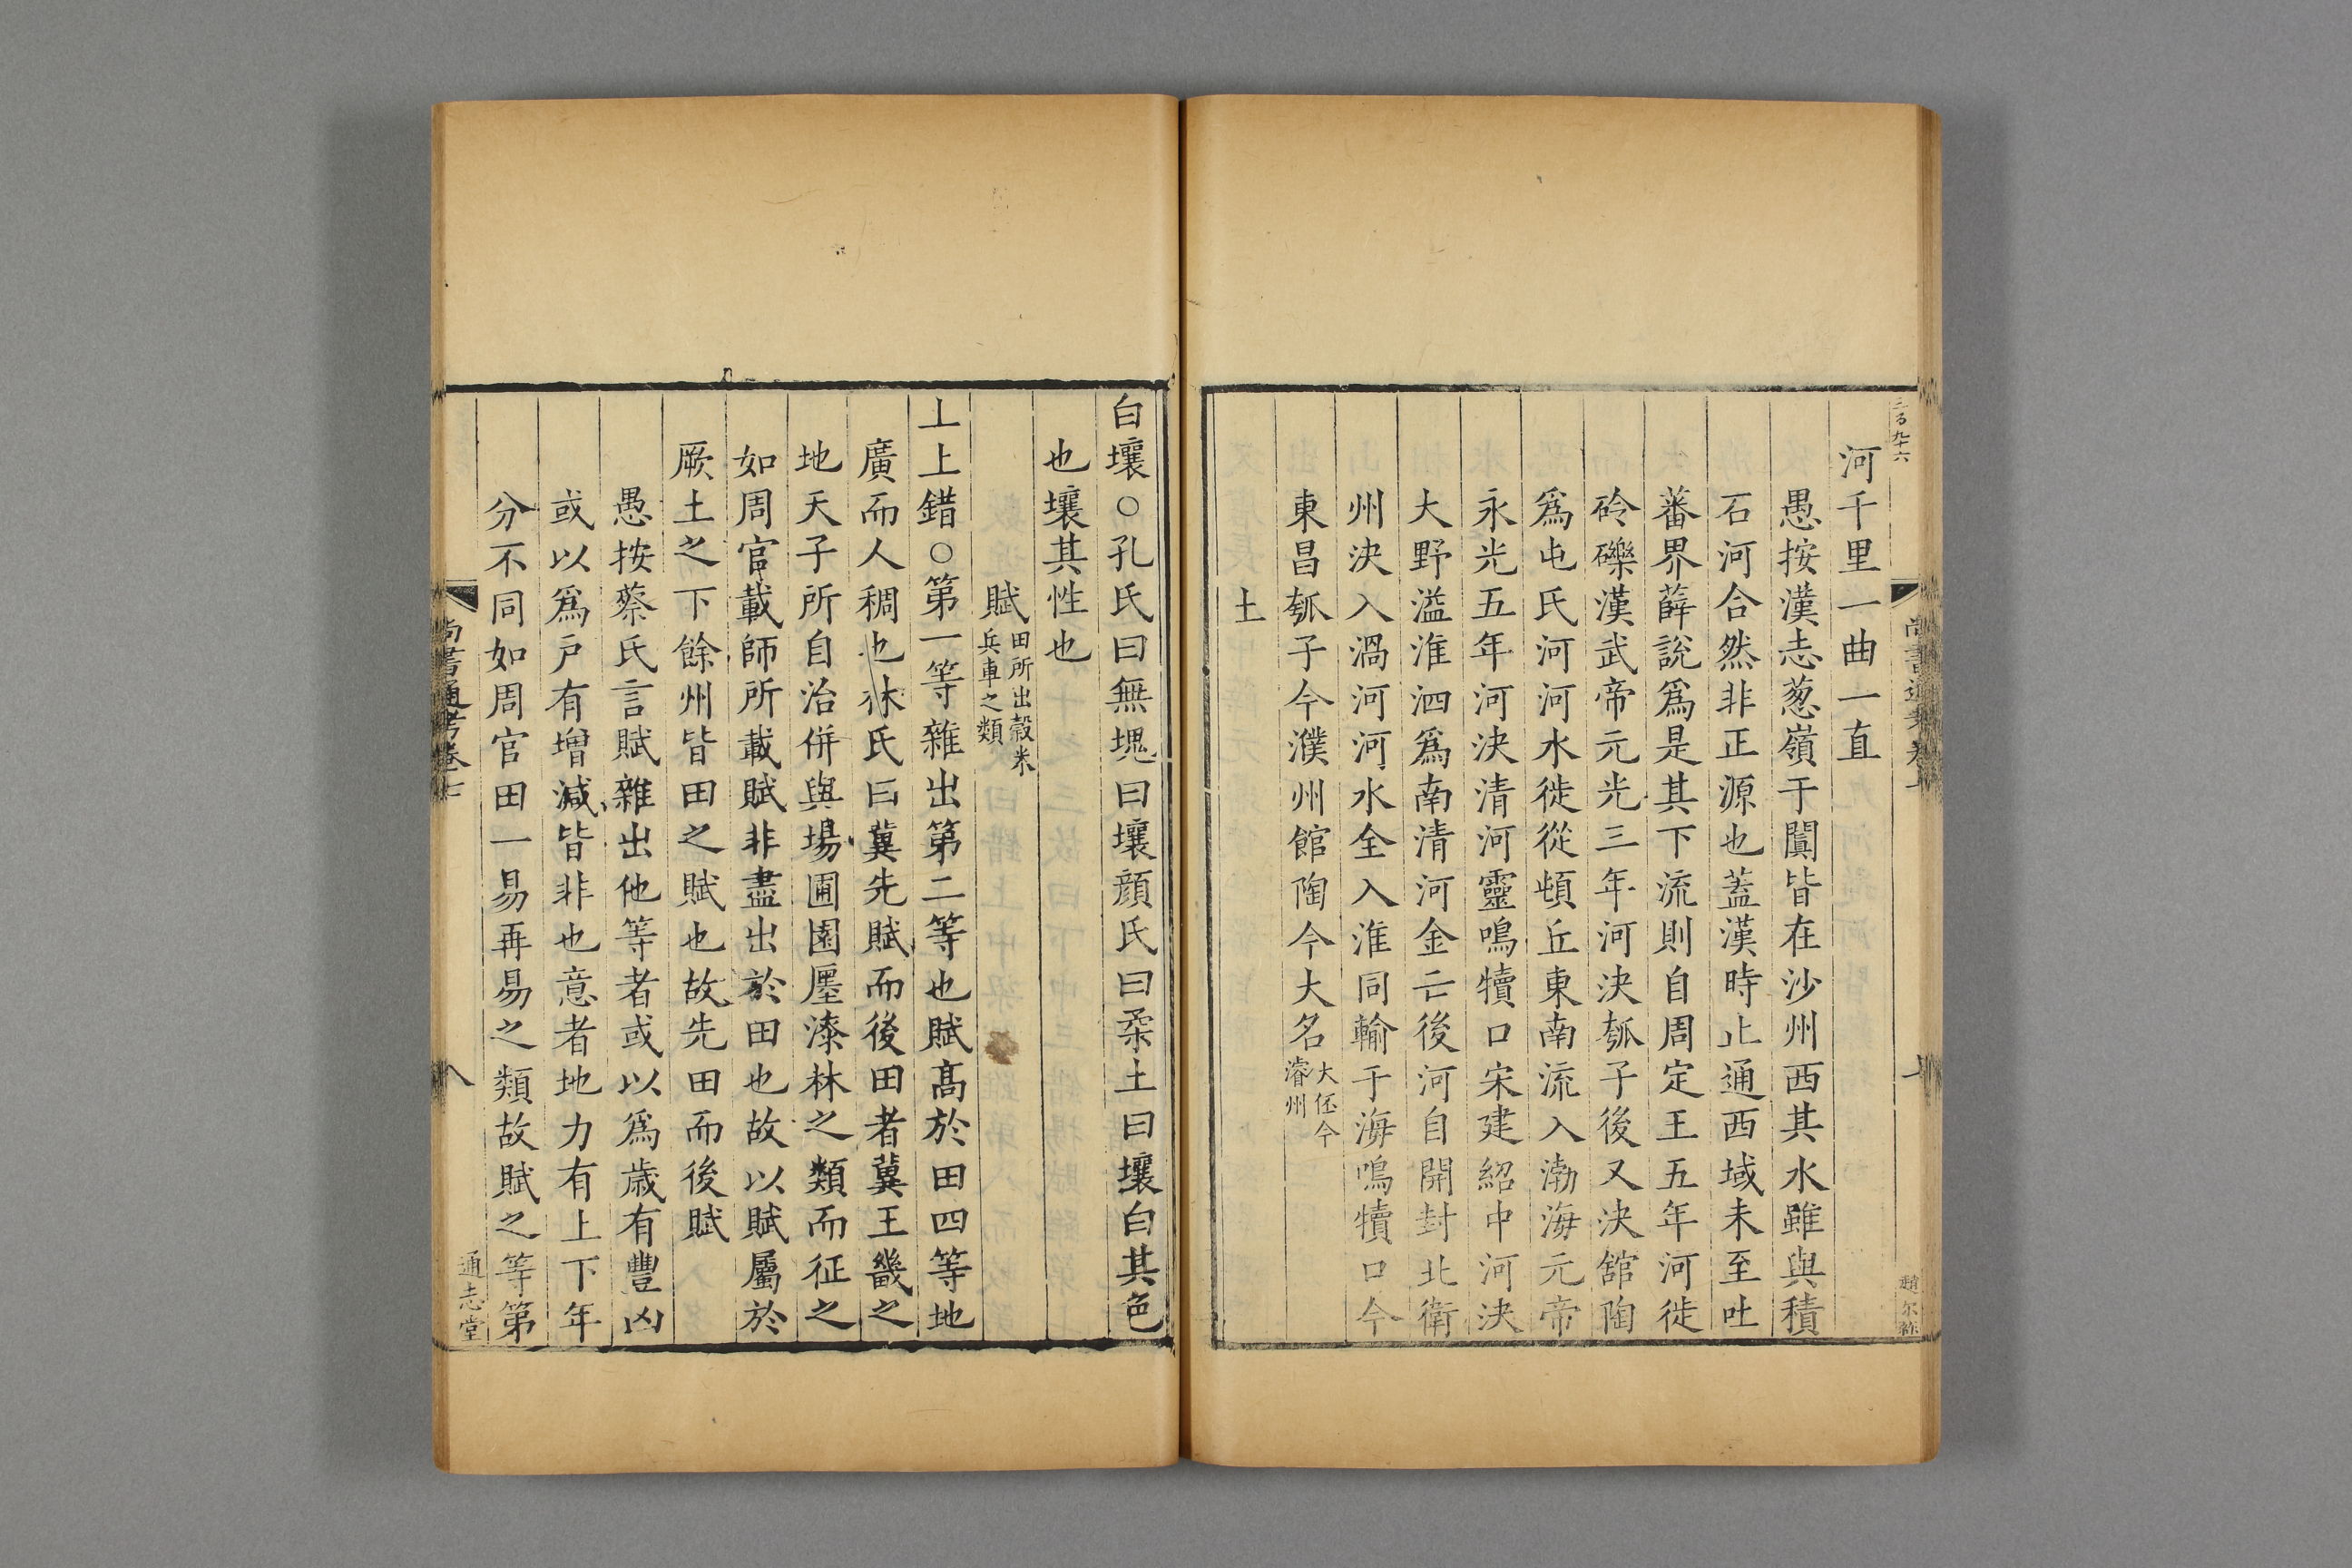 三百九十六
尚書通考卷七
七
趙尔
河千里一曲一直
愚按漢志葱嶺于闐皆在沙州西其水雖與積
石河合然非正源也蓋漢時止通西域未至吐
蕃界薛說爲是其下流則自周定王五年河徙
砱礫漢武帝元光三年河決瓠子後又決舘陶
爲屯氏河河水徙從頓丘東南流入渤海元帝
永光五年河決清河靈鳴犢口宋建紹中河決
大野溢淮泗爲南清河金亡後河自開封北衛
州決入渦河河水全入淮同輸于海鳴犢口今
東昌瓠子今濮州館陶今大名大伾今濬州
土
白壤○孔氏曰無塊曰壤顏氏曰柔土曰壤白其色
也壤其性也
賦田所出穀米兵車之類
上上錯○第一等雜出第二等也賦高於田四等地
廣而人稠也林氏曰冀先賦而後田者冀王畿之
地天子所自治併與場圃園廛漆林之類而征之
如周官載師所載賦非盡出於田也故以賦屬於
厥土之下餘州皆田之賦也故先田而後賦
愚按蔡氏言賦雜出他等者或以爲歲有豐凶
或以爲戶有增減皆非也意者地力有上下年
分不同如周官田一易再易之類故賦之等第
尚書通考卷七
八
通志堂